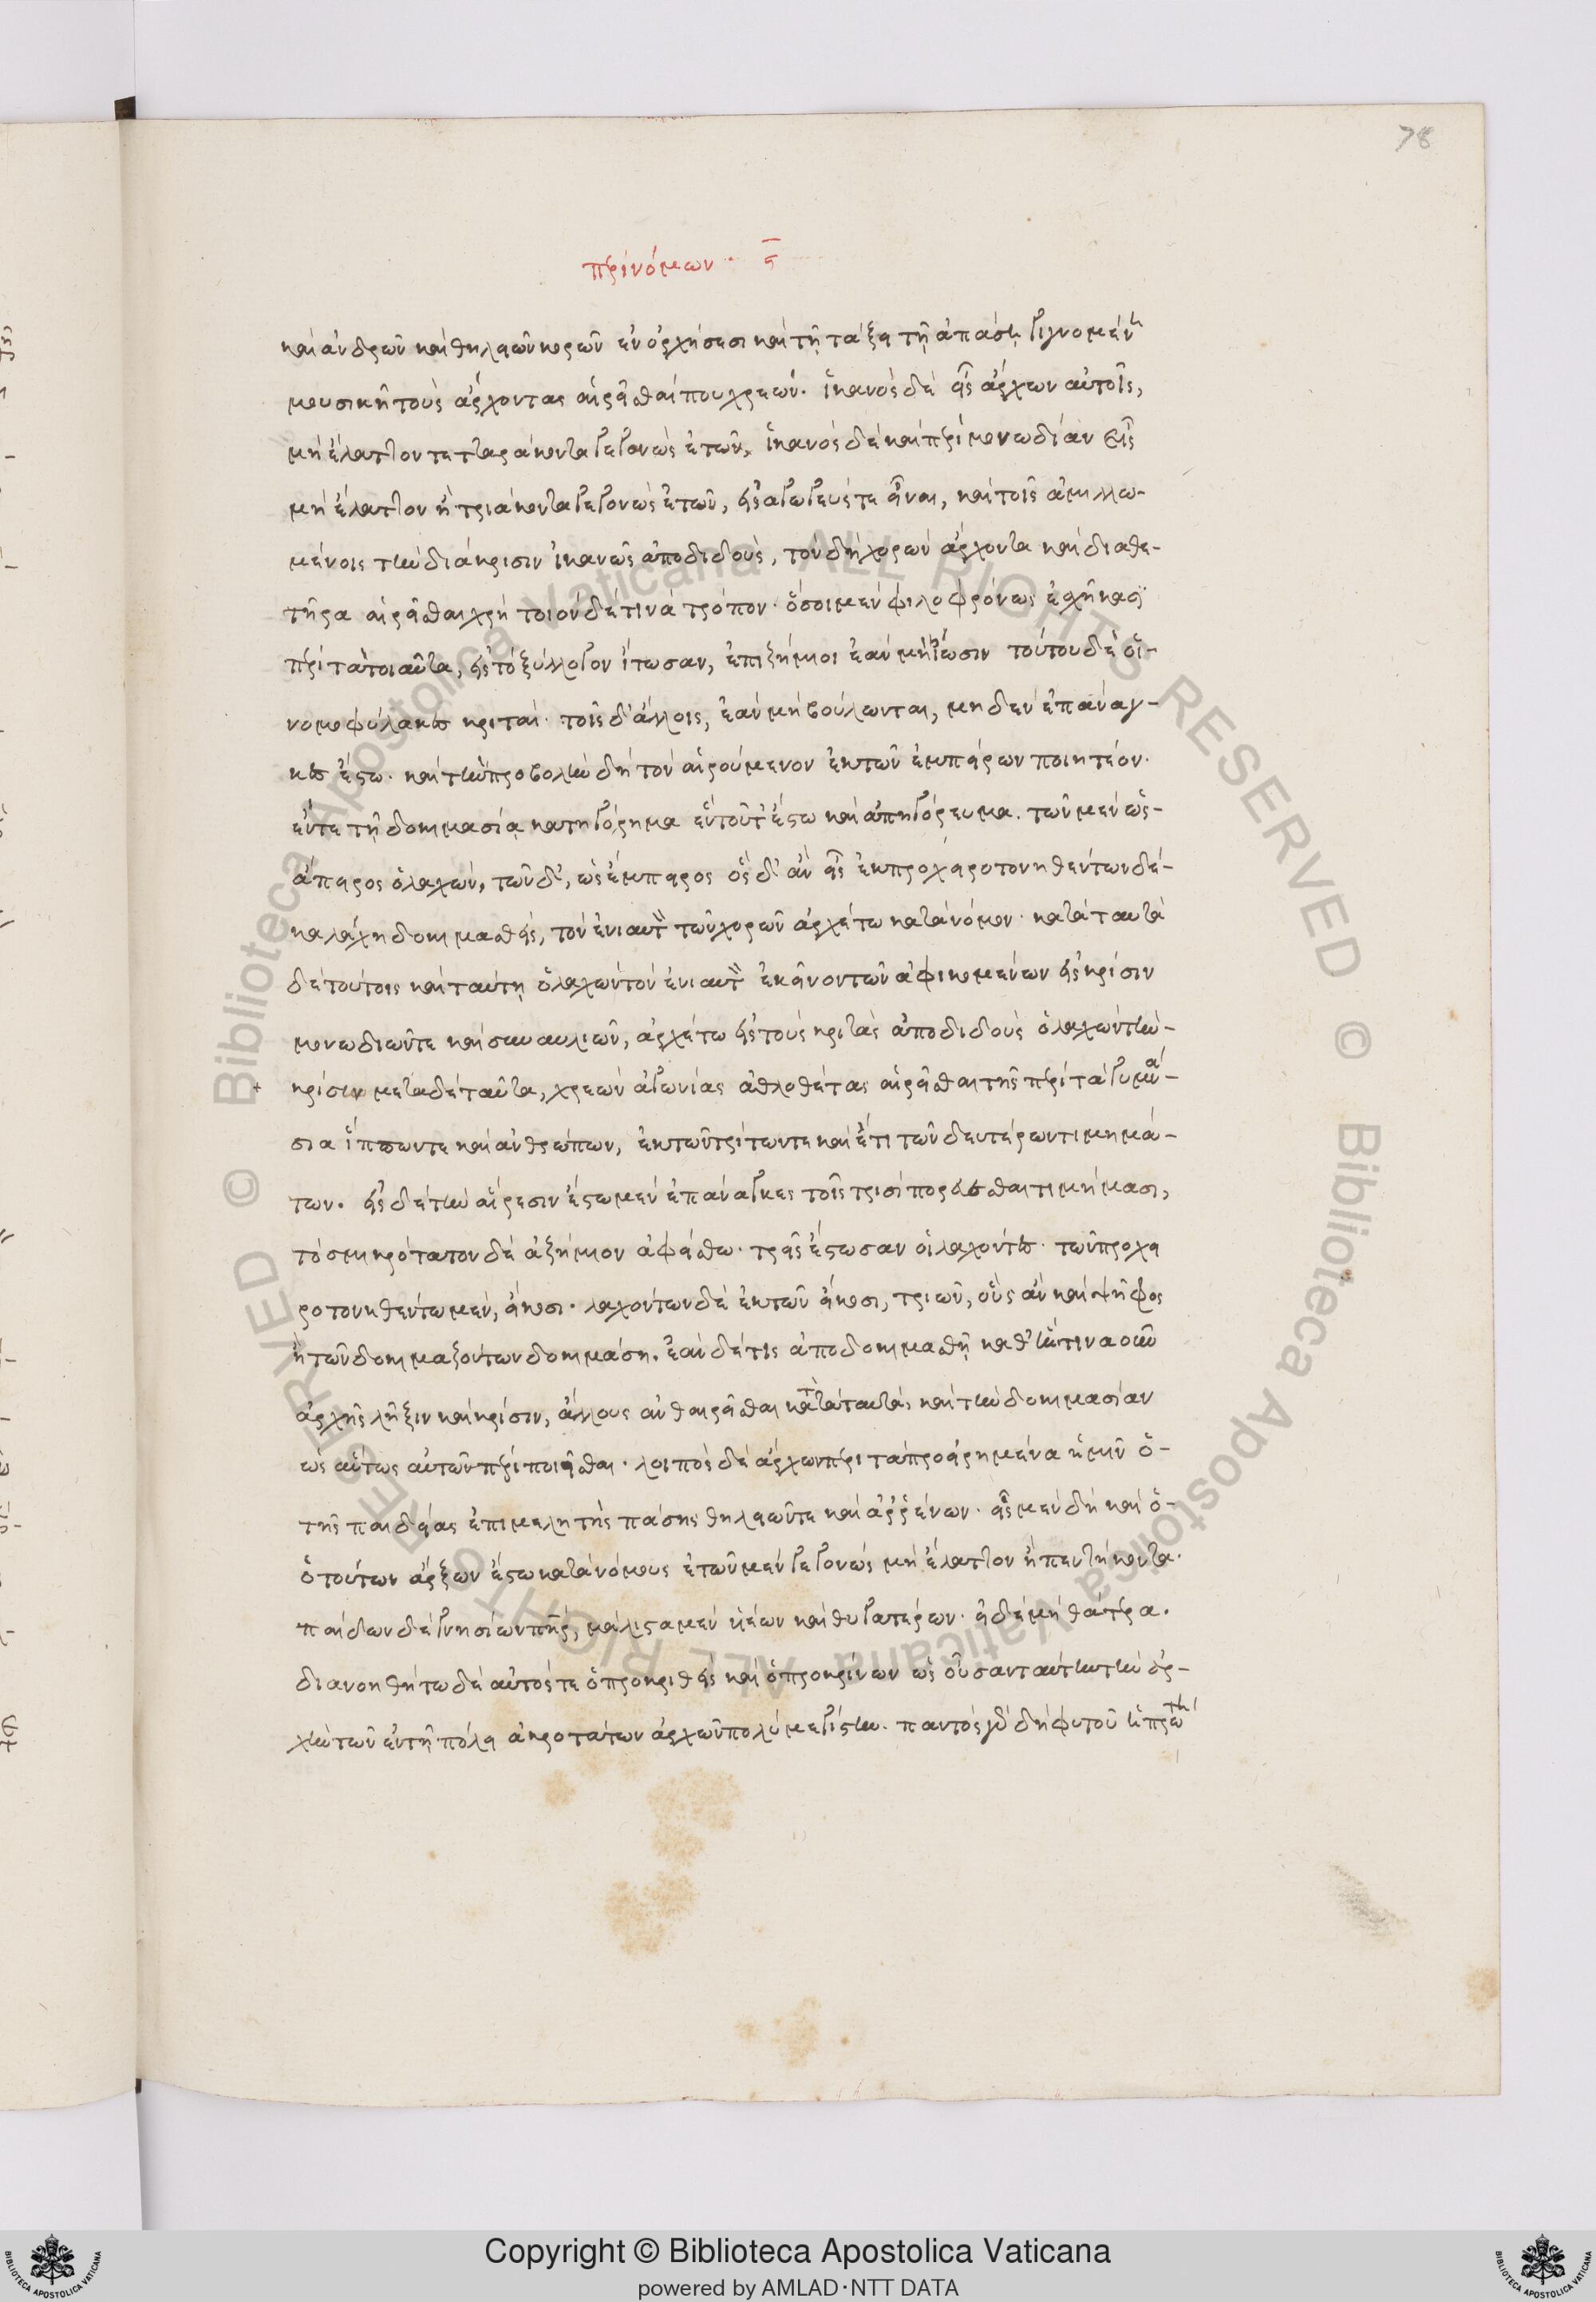 78
περὶ νόμων · ς
καὶ ἀνδρῶν καὶ θηλειῶν κορῶν ἐν ὀρχήσεσι καὶ τῇ τάξει τῇ ἁπάσῃ γιγνομένῃ
μουσικῇ τοὺς ἄρχοντας αἱρεῖσθαί που χρεών. ἱκανὸς δὲ εἷς ἄρχων αὐτοῖς,
μὴ ἔλαττον τετταράκοντα γεγονὼς ἐτῶν, ἱκανὸς δὲ καὶ περὶ μονωδίαν εἷς
μὴ ἔλαττον ἢ τριάκοντα γεγονὼς ἐτῶν, εἰσαγωγεύς τε εἶναι, καὶ τοῖς ἁμιλλω-
μένοις τὴν διάκρισιν ἱκανῶς ἀποδιδούς, τὸν δὴ χορῶν ἄρχοντα καὶ διαθε-
τῆρα αἱρεῖσθαι χρὴ τοιόνδέ τινα τρόπον · ὅσοι μὲν φιλοφρόνως ἐσχήκασι
περὶ τὰ τοιαῦτα, εἰς τὸ ξύλλογον ἴτωσαν, ἐπιζήμιοι ἐὰν μὴ ἴωσιν τούτου δὲ οἱ-
νομοφύλακες κριταί · τοῖς δ' ἄλλοις, ἐὰν μὴ βούλωνται, μηδὲν ἐπάναγ-
κες ἔστω · καὶ τὴν προβολὴν δὴ τὸν αἱρούμενον ἐκ τῶν ἐμπείρων ποιητέον ·
ἔν τε τῇ δοκιμασίᾳ κατηγόρημα ἓν τοῦτ' ἔστω καὶ ἀπηγόρευμα. τῶν μὲν ὡς-
ἄπειρος ὁ λαχών, τῶν δ', ὡς ἔμπειρος ὃς δ' ἂν εἷς ἐκ προχειροτονηθέντων δέ-
κα λάχῃ δοκιμασθείς, τὸν ἐνιαυτὸν τῶν χορῶν ἀρχέτω κατὰ νόμον · κατὰ ταυτὰ
δὲ τούτοις καὶ ταύτῃ ὁ λαχὼν τὸν ἐνιαυτὸν ἐκεῖνον τῶν ἀφικομένων εἰς κρίσιν
μονωδιῶν τε καὶ συναυλιῶν, ἀρχέτω εἰς τοὺς κριτὰς ἀποδιδοὺς ὁ λαχὼν τὴν-
κρίσιν μετὰ δὲ ταῦτα, χρεὼν ἀγωνίας ἀθλοθέτας αἱρεῖσθαι τῆς περὶ τὰ γυμνά-
σια ἵππων τε καὶ ἀνθρώπων, ἐκ τῶν τρίτων τε καὶ ἔτι τῶν δευτέρων τιμημά-
των. εἰς δὲ τὴν αἵρεσιν ἔστω μὲν ἐπάναγκες τοῖς τρισὶ πορεύεσθαι τιμήμασι,
τὸ σμικρότατον δὲ ἀζήμιον ἀφείσθω · τρεῖς ἔστωσαν οἱ λαχόντες · τῶν προχει
ροτονηθέντων μέν, εἴκοσι · λαχόντων δὲ ἐκ τῶν εἴκοσι, τριῶν, οὓς ἂν καὶ ψῆφος
ἡ τῶν δοκιμαζόντων δοκιμάσῃ. ἐὰν δέ τις ἀποδοκιμασθῇ καθ' ἥντινα οὖν
ἀρχῆς λῆξιν καὶ κρίσιν, ἄλλους ἀνθαιρεῖσθαι κατὰ ταυτὰ, καὶ τὴν δοκιμασίαν
ὡς αὕτως αὐτῶν πέρι ποιεῖσθαι · λοιπὸς δὲ ἄρχων περὶ τὰ προειρημένα ἡμῖν ὁ-
τῆς παιδείας ἐπιμελητὴς πάσης θηλειῶν τε καὶ ἀῤῥένων · εἷς μὲν δὴ καὶ ὁ-
ὁ τούτων ἄρξων ἔστω κατὰ νόμους ἐτῶν μὲν γεγονὼς μὴ ἔλαττον ἢ πεντήκοντα ·
παίδων δὲ γνησίων πατήρ, μάλιστα μὲν ὑέων καὶ θυγατέρων · εἰ δὲ μὴ θάτερα.
διανοηθήτω δὲ αὐτός τε ὁ προκριθεὶς καὶ ὁ προκρίνων ὡς οὖσαν ταύτην τὴν ἀρ-
χὴν τῶν ἐν τῇ πόλει ἀκροτάτων ἀρχῶν πολὺ μεγίστην · παντὸς γὰρ δὴ φυτοῦ ἡ πρώτη
Copyright © Biblioteca Apostolica Vaticana
powered by AMLAD·NTT DATA